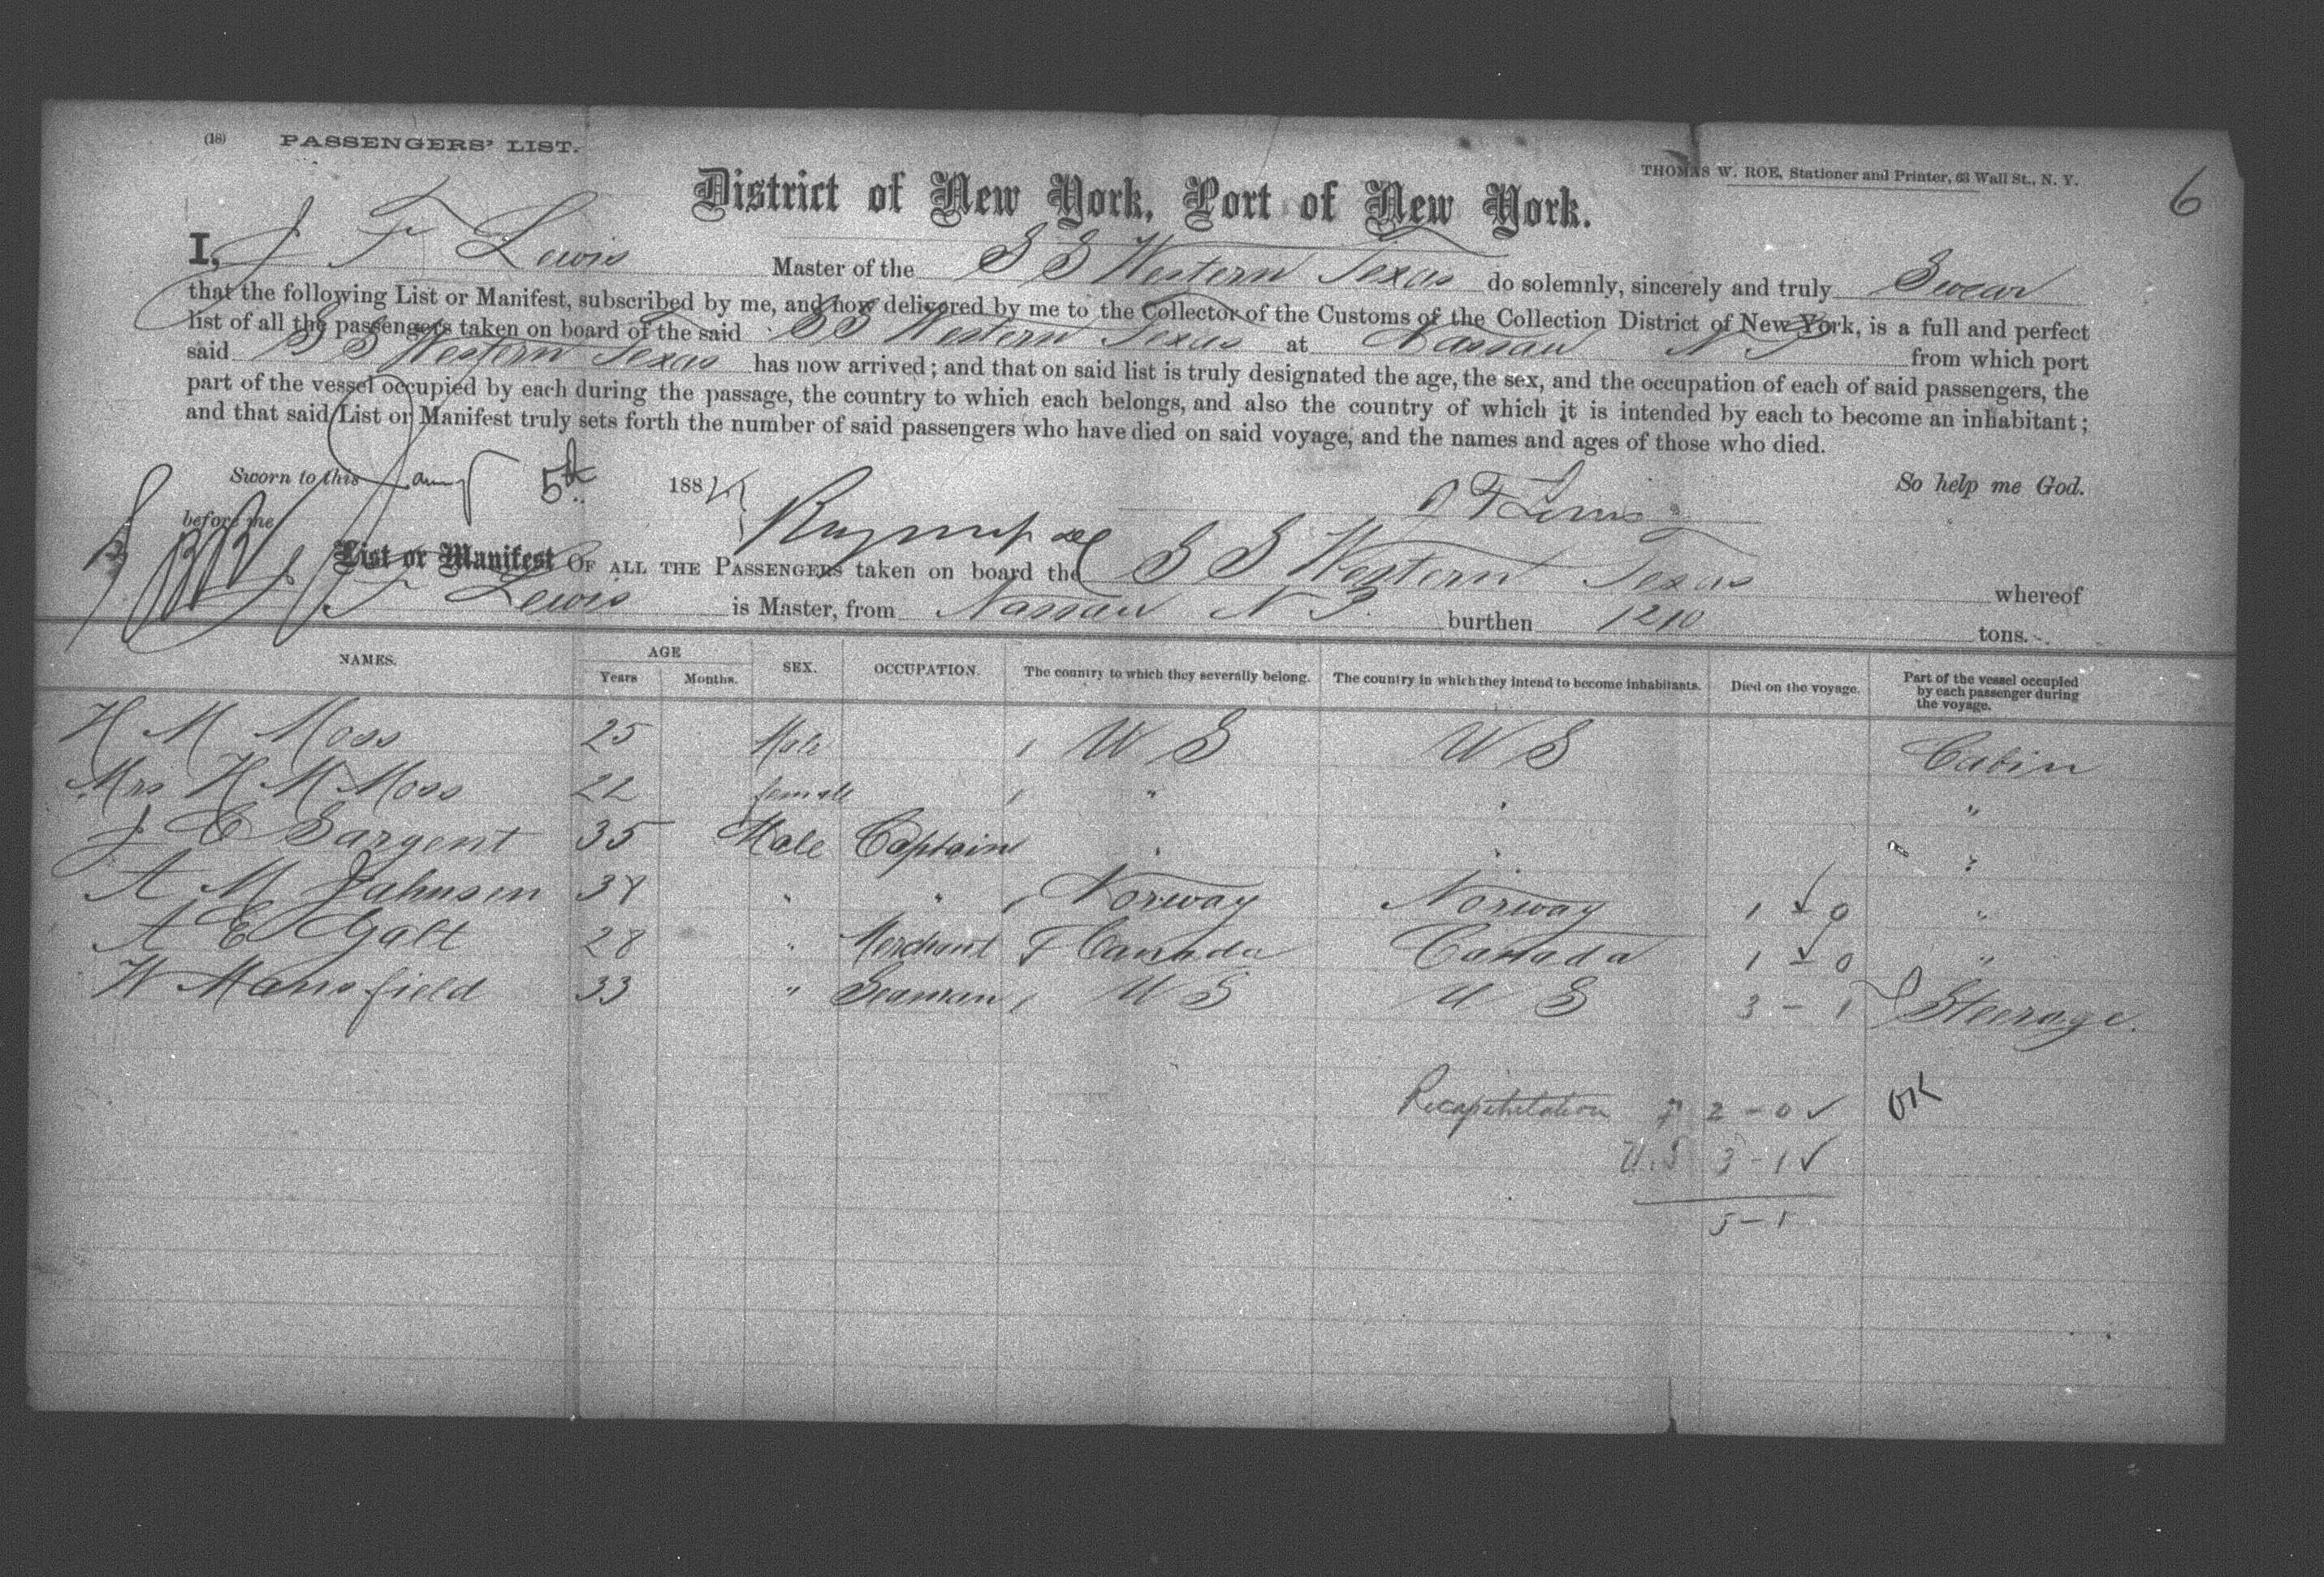 (18) PASSENGERS' LIST.
THOMAS W. ROE, Stationer and Printer, 63 Wall St., N. Y.
6
District of New York, Port of New York.
I, J F Lewis Master of the S S Western Texas do solemnly, sincerely and truly Swear
that the following List or Manifest, subscribed by me, and now delivered by me to the Collector of the Customs of the Collection District of New York, is a full and perfect
list of all the passengers taken on board of the said S S Western Texas at Nassau N P from which port
said S S Western Texas has now arrived; and that on said list is truly designated the age, the sex, and the occupation of each of said passengers, the
part of the vessel occupied by each during the passage, the country to which each belongs, and also the country of which it is intended by each to become an inhabitant;
and that said List or Manifest truly sets forth the number of said passengers who have died on said voyage, and the names and ages of those who died.
Sworn to this Jany 5th 188 J F Lewis So help me God.
before me
List or Manifest OF ALL THE PASSENGERS taken on board the S S Western Texas whereof
J F Lewis is Master, from Nassau N P. burthen 1210 tons.
NAMES. AGE Years Months. SEX. OCCUPATION. The country to which they severally belong. The country in which they intend to become inhabitants. Died on the voyage. Part of the vessel occupied by each passenger during the voyage.
H M Moss 25 Male U S U S Cabin
Mrs H M Moss 22 female " " "
J E Sargent 35 Male Captain " " "
A M Jahnsen 38 " " Norway Norway 1 - 0 "
A E Galt 28 " Merchant Canada Canada 1 - 0 "
W Mansfield 33 " Seaman U S U S 3 - 1 Steerage.
Recapitulation F 2 - 0 ✓ OK
U.S 3 - 1 ✓
5 - 1